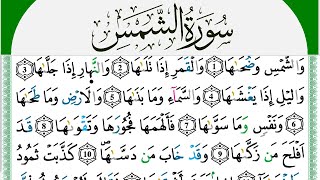 سُورَةُ الشَّمْسِ
وَالشَّمْسِ وَضُحَىٰهَا ١ وَالْقَمَرِ إِذَا تَلَىٰهَا ٢ وَالنَّهَارِ إِذَا جَلَّىٰهَا ٣
وَاللَّيْلِ إِذَا يَغْشَىٰهَا ٤ وَالسَّمَآءِ وَمَا بَنَىٰهَا ٥ وَالْأَرْضِ وَمَا طَحَىٰهَا
٦ وَنَفْسٍ وَمَا سَوَّىٰهَا ٧ فَأَلْهَمَهَا فُجُورَهَا وَتَقْوَىٰهَا ٨ قَدْ
أَفْلَحَ مَن زَكَّىٰهَا ٩ وَقَدْ خَابَ مَن دَسَّىٰهَا ١٠ كَذَّبَتْ ثَمُودُ